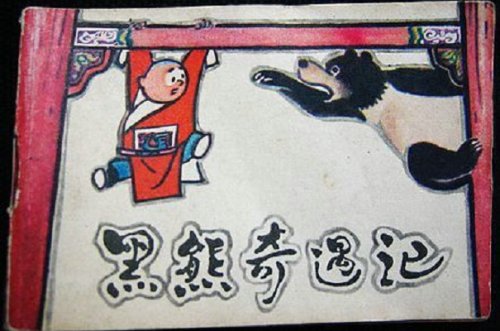 黑熊奇遇记